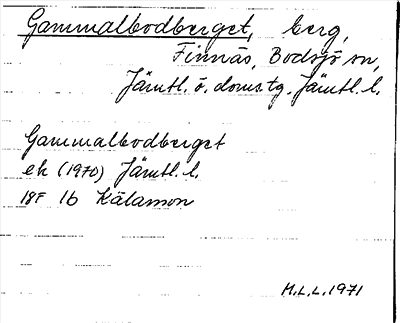 Gammalbodberget, berg,
Finnäs, Bodsjö sn,
Jämtl. ö. doms.tg. Jämtl. l.
Gammalbodberget
ek (1970) Jämtl. l.
18F 1b Kälarnon
M.L.L. 1971